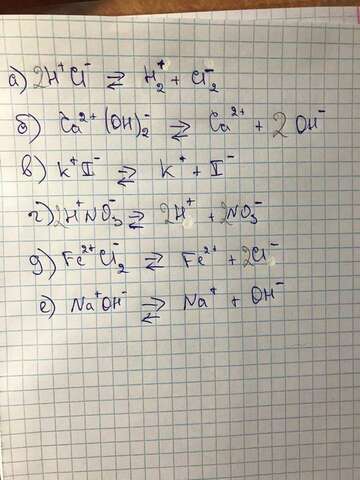 а) 2H⁺Cl⁻ ⇄ H₂⁺ + Cl₂⁻
б) Ca²⁺(OH)₂⁻ ⇄ Ca²⁺ + 2OH⁻
в) K⁺I⁻ ⇄ K⁺ + I⁻
г) 2H⁺NO₃⁻ ⇄ 2H⁺ + 2NO₃⁻
д) Fe²⁺Cl₂⁻ ⇄ Fe²⁺ + 2Cl⁻
е) Na⁺OH⁻ ⇄ Na⁺ + OH⁻